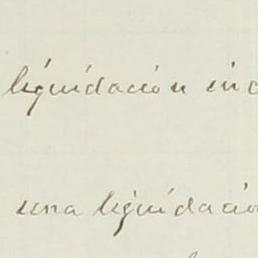 liquidación
una liquidació